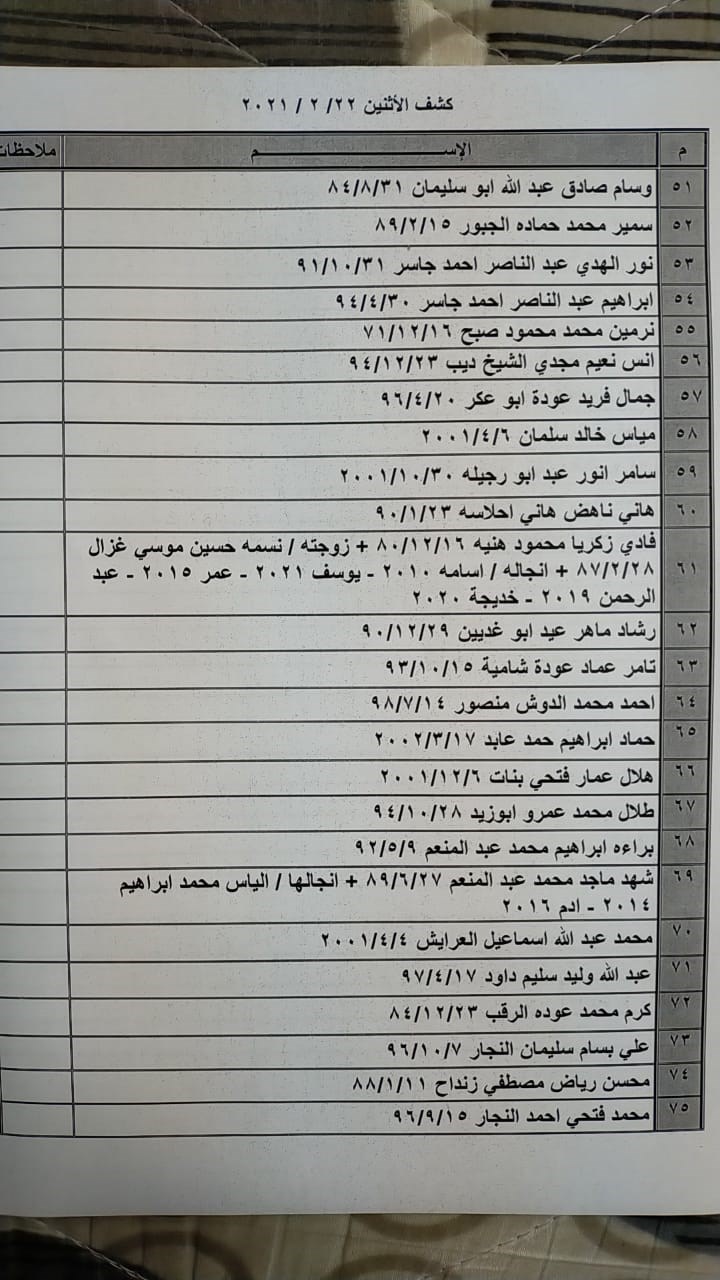 كشف الأثنين ٢٢/ ٢ / ٢٠٢١
م الإســــــــم ملاحظات
٥١ وسام صادق عبد الله ابو سليمان ٨٤/٨/٣١
٥٢ سمير محمد حماده الجبور ٨٩/٢/١٥
٥٣ نور الهدي عبد الناصر احمد جاسر ٩١/١٠/٣١
٥٤ ابراهيم عبد الناصر احمد جاسر ٩٤/٤/٣٠
٥٥ نرمين محمد محمود صبح ٧١/١٢/١٦
٥٦ انس نعيم مجدي الشيخ ديب ٩٤/١٢/٢٣
٥٧ جمال فريد عودة ابو عكر ٩٦/٤/٢٠
٥٨ مياس خالد سلمان ٢٠٠١/٤/٦
٥٩ سامر انور عبد ابو رجيله ٢٠٠١/١٠/٣٠
٦٠ هاني ناهض هاني احلاسه ٩٠/١/٢٣
٦١ فادي زكريا محمود هنيه ٨٠/١٢/١٦ + زوجته / نسمه حسين موسي غزال
٨٧/٢/٢٨ + انجاله / اسامه ٢٠١٠ - يوسف ٢٠٢١ - عمر ٢٠١٥ - عبد
الرحمن ٢٠١٩ - خديجة ٢٠٢٠
٦٢ رشاد ماهر عيد ابو غديين ٩٠/١٢/٢٩
٦٣ تامر عماد عودة شامية ٩٣/١٠/١٥
٦٤ احمد محمد الدوش منصور ٩٨/٧/١٤
٦٥ حماد ابراهيم حمد عابد ٢٠٠٢/٣/١٧
٦٦ هلال عمار فتحي بنات ٢٠٠١/١٢/٦
٦٧ طلال محمد عمرو ابوزيد ٩٤/١٠/٢٨
٦٨ براءه ابراهيم محمد عبد المنعم ٩٢/٥/٩
٦٩ شهد ماجد محمد عبد المنعم ٨٩/٦/٢٧ + انجالها / الياس محمد ابراهيم
٢٠١٤ - ادم ٢٠١٦
٧٠ محمد عبد الله اسماعيل العرايش ٢٠٠١/٤/٤
٧١ عبد الله وليد سليم داود ٩٧/٤/١٧
٧٢ كرم محمد عوده الرقب ٨٤/١٢/٢٣
٧٣ علي بسام سليمان النجار ٩٦/١٠/٧
٧٤ محسن رياض مصطفي زنداح ٨٨/١/١١
٧٥ محمد فتحي احمد النجار ٩٦/٩/١٥